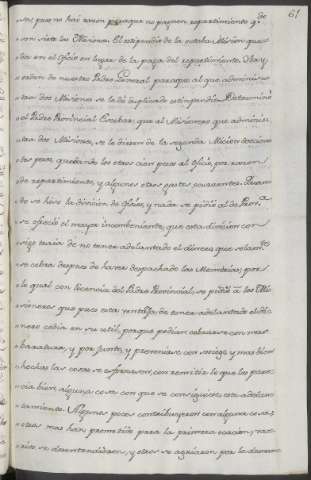 61
tos, pues no hai razon para que no paguen repartimiento qdo
son siete las Misiones. El estipendio de la octava Mision que-
da en el Oficio en lugar de la paga del repartimiento. Ubo y
orden de nuestro Padre General para que al que adminis-
tra dos Misiones se le dè duplicado estipendio. Determinó
el Padre Provincial Escobar, que al Misionero que adminis-
tra dos Misiones, se le diesen de la segunda Mision doscien-
tos pesos, quedando los otros cien pesos al Oficio, por razon
de repartimiento, y algunos otros gastos ocurrentes. Quan-
do se hizo la division de Oficios, y nada se pidió al de Prova
se ofreció el mayor incombeniente, que esta division con-
sigo traia de no tener adelantado el dinero, que solamte
se cobra despues de haver despachado las Memorias; por
lo qual con licencia del Padre Provincial, se pidió à los Mi-
sioneros que pues esta ventaja de tener adelantado el di-
nero cedia en su util, porque podian cobrarse con mas
baratura, y por junto, y prevenirse con sosiego y mas bien
hechas las cosas se esforzasen, con remitir lo que les pare-
cia bien, alguna cosa con que se consiguiese este adelan-
tamiento. Algunos pocos contribuyeron con alguna cosa;
otros mas han prometido para la primera ocasion;
se desentendieron, y otros se agriaron por la